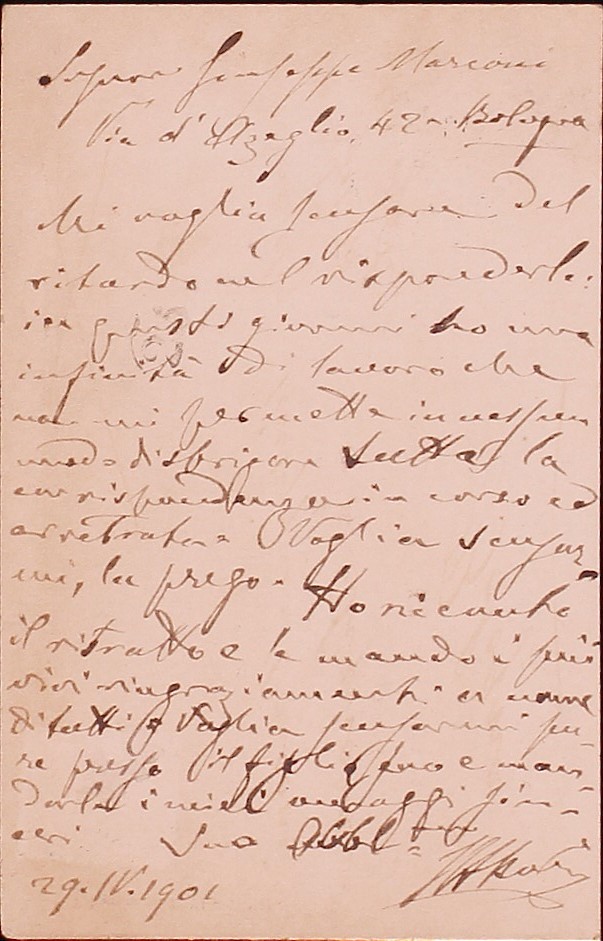 Signor Giuseppe Marconi
Via d'Azeglio, 42 - Bologna
Mi voglia scusare del
ritardo nel risponderle:
in questi giorni ho una
infinità di lavoro che
non mi permette in nessun
modo disbrigare tutta la
corrispondenza in corso ed
arretrata. Voglia scusar
mi, la prego. Ho ricevuto
il ritratto e le mando i più
vivi ringraziamenti a nome
di tutti. Voglia scusarmi pu-
re presso il figlio suo e man-
darle i miei omaggi sin-
ceri. Suo Obbl.mo
29.IV.1901